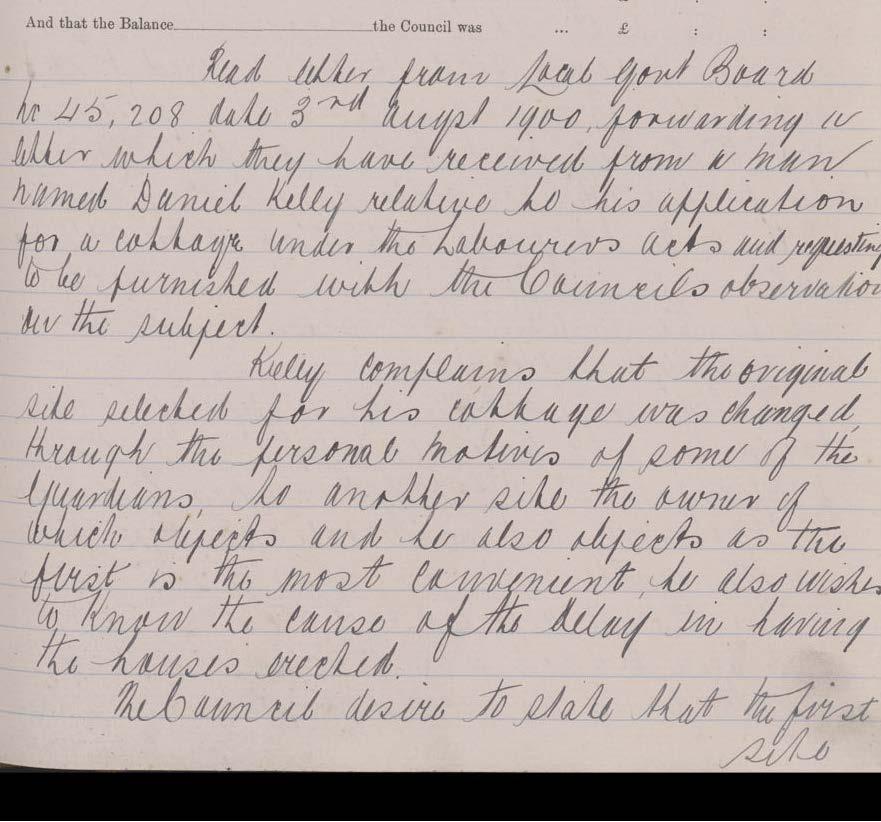 And that the Balance the Council was ... £ : :
Read letter from Local Govt Board
No 45,208 date 3rd augst 1900, forwarding a
letter which they have received from a man
named Daniel Kelly relative to his application
for a cottage under the Labourers acts and requesting
to be furnished with the Councils observation
on the subject.
Kelly complains that the original
site selected for his cottage was changed,
through the personal motives of some of the
Guardians, to another site the owner of
which objects and he also objects as the
first is the most convenient, he also wishes
to know the cause of the delay in having
the houses erected.
The Council desire to state that the first
site